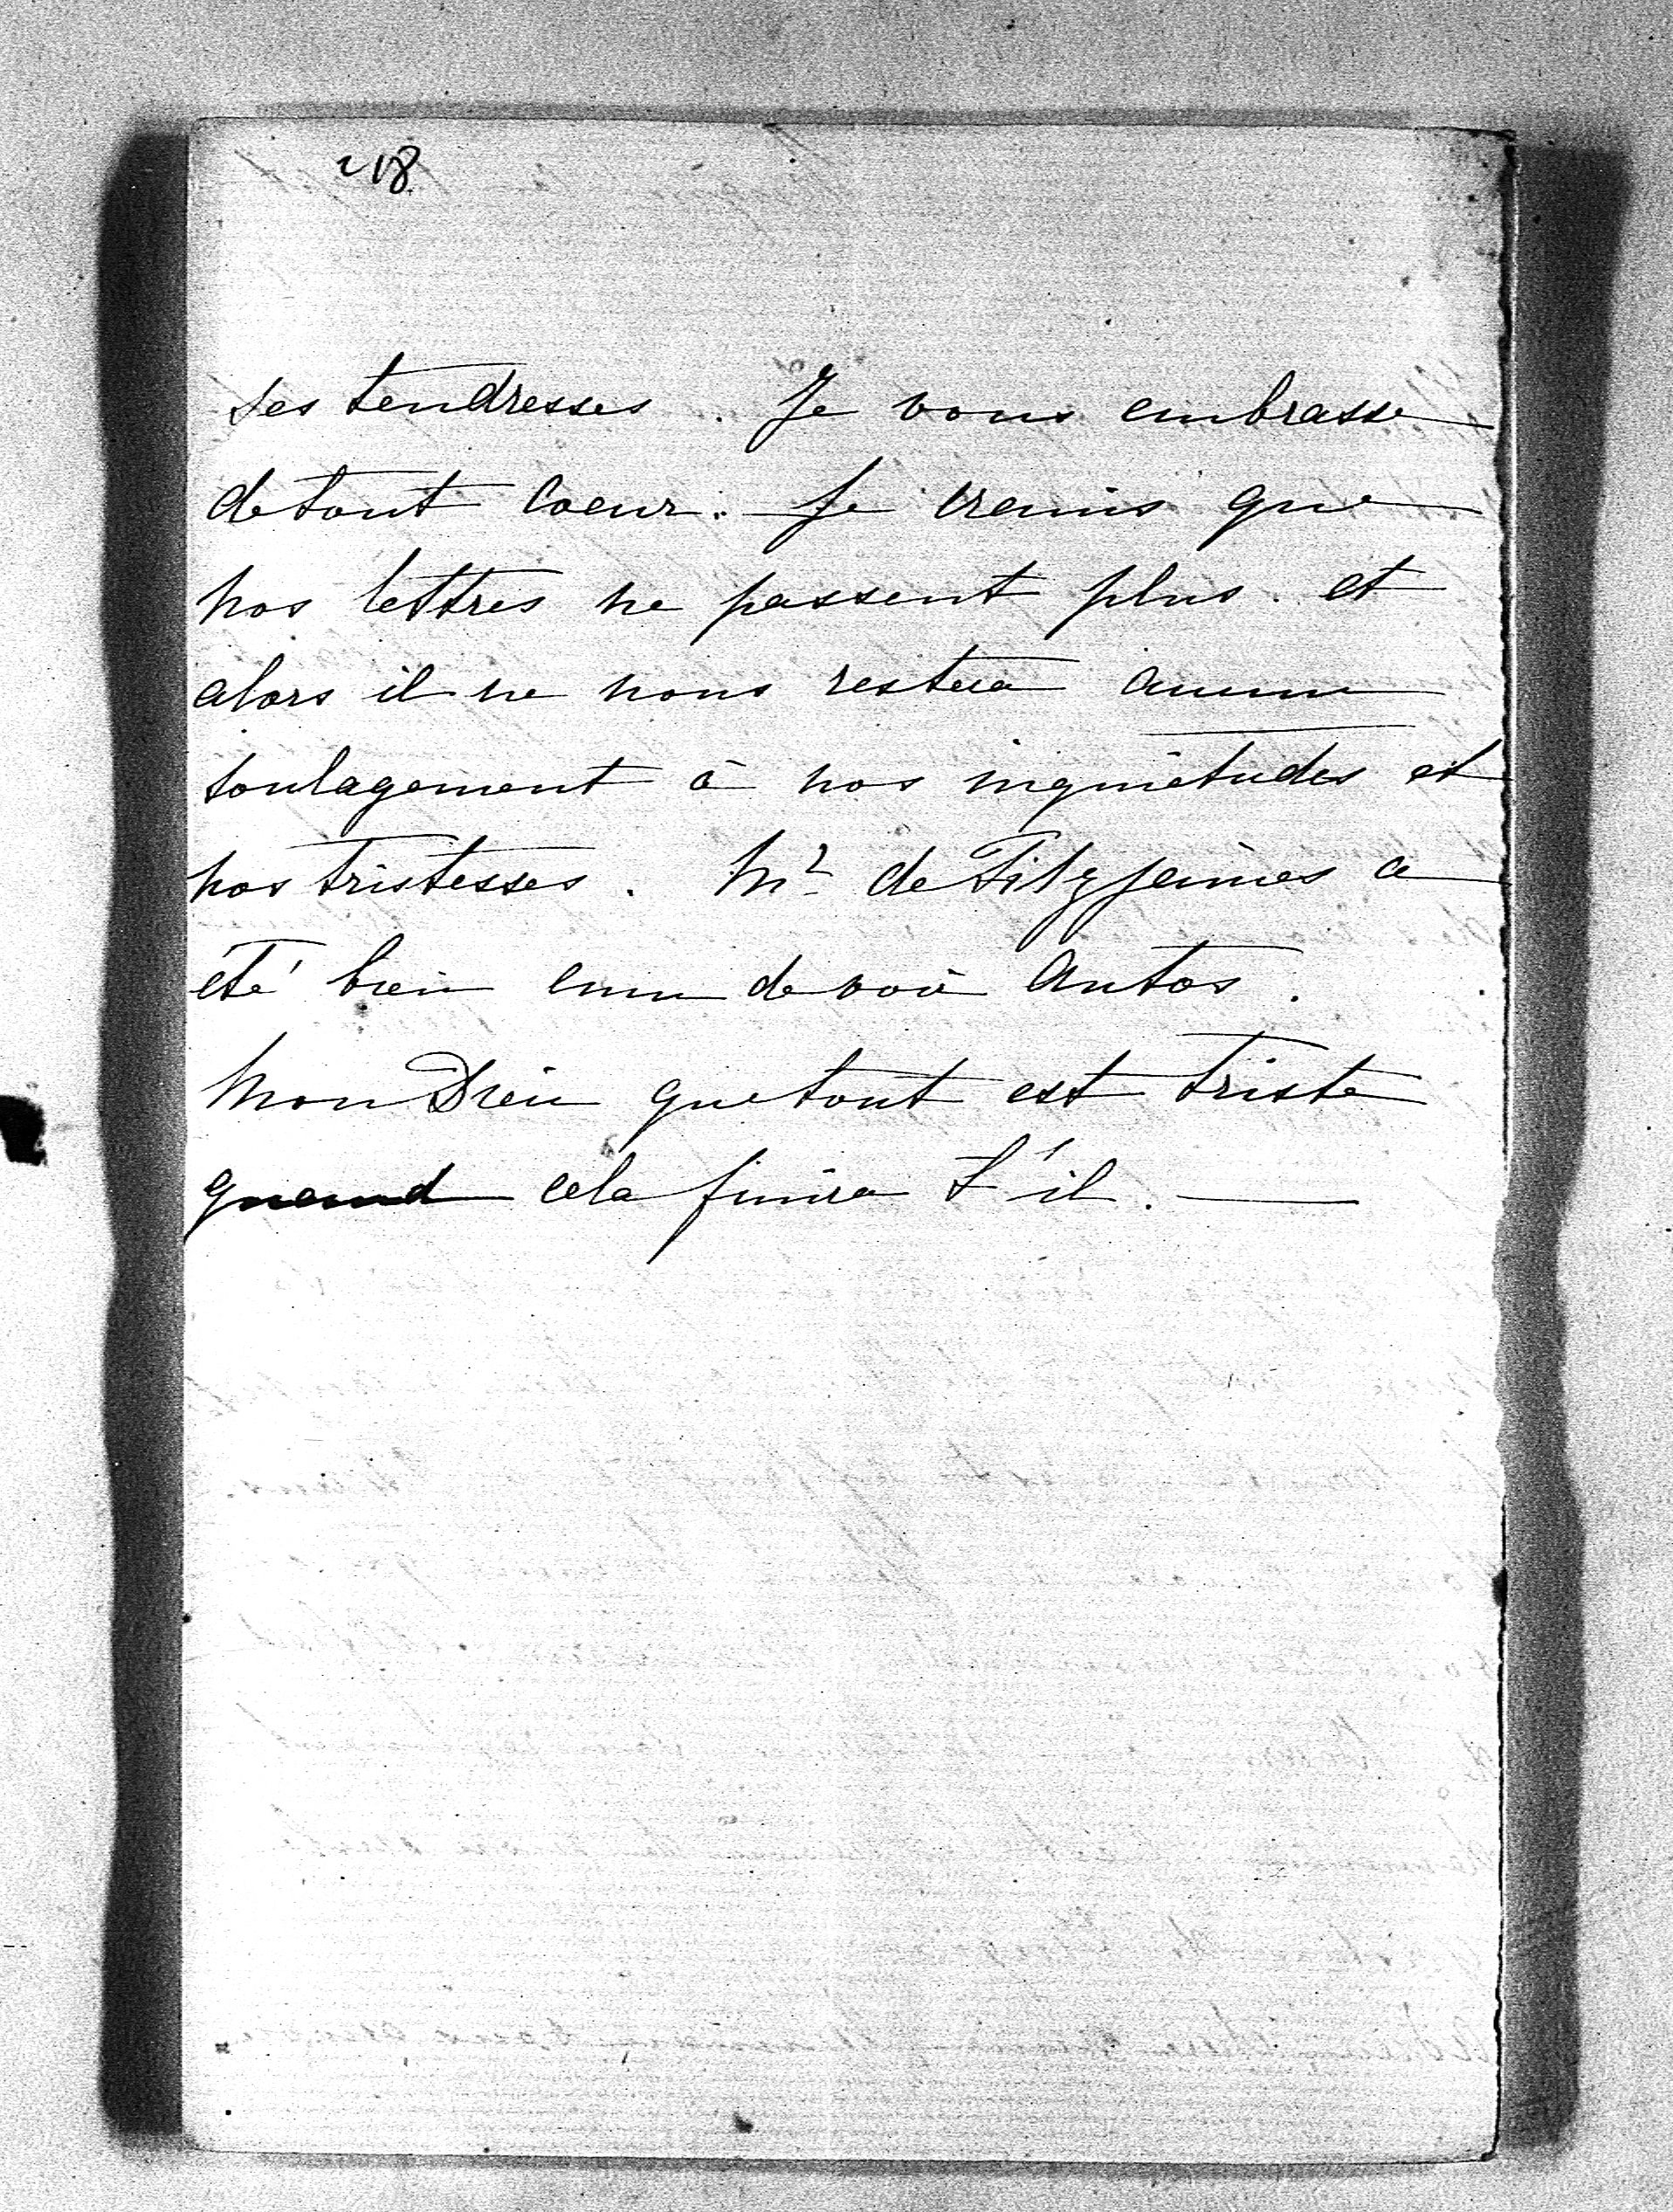 218
ses tendresses. Je vous embrasse
de tout coeur. Je crains que
nos lettres ne passent plus. et
alors il ne nous restera aucun
soulagement à nos inquiétudes et
nos tristesses. Mr de Fitzjames a
été bien emu de voir Antos.
Mon Dieu que tout est triste
quand cela finira t'il. —